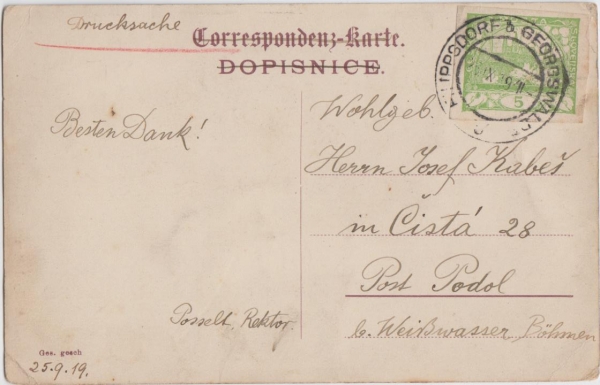 Drucksache
Correspondenz-Karte.
DOPISNICE.
PHILIPPSDORF b. GEORGSWALDE
5
Wohlgeb.
Besten Dank!
Herrn Josef Kabeš
in Čistá 28
Post Podol
Posselt, Rektor.
b. Weißwasser, Böhmen
Ges. gesch
25.9.19.